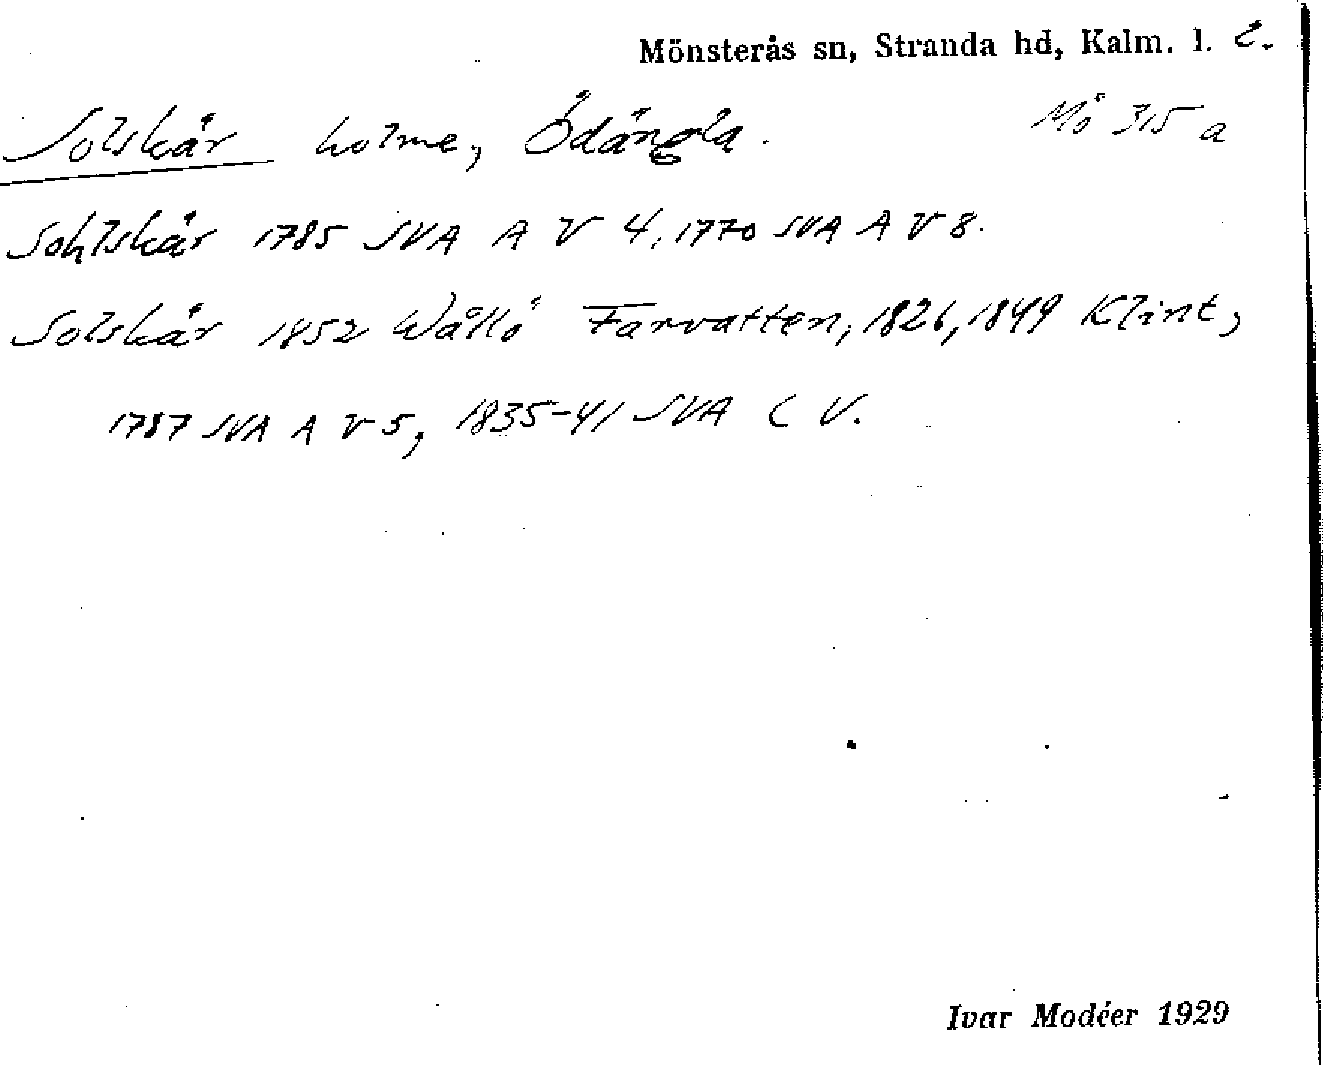 Mönsterås sn, Stranda hd, Kalm. l. 2.
Solskär holme, Ödängla. Mö 315 a
Sohlskär 1785 SVA A V 4, 1770 SVA A V 8.
Solskär 1852 Wållö Farvatten, 1826, 1849 Klint,
1787 SVA A V 5, 1835-41 SVA C V.
Ivar Modéer 1929